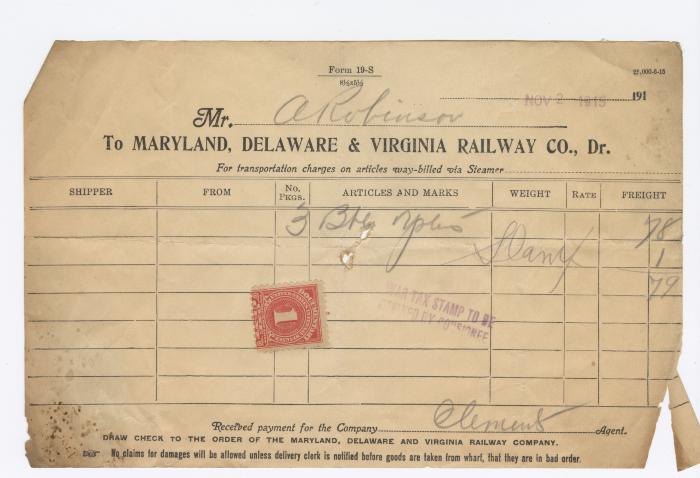 Form 19-S
8½x5½
25,000-6-15
NOV 2 1915 191
Mr. A Robinson
To MARYLAND, DELAWARE & VIRGINIA RAILWAY CO., Dr.
For transportation charges on articles way-billed via Steamer
SHIPPER FROM No. PKGS. ARTICLES AND MARKS WEIGHT RATE FREIGHT
3 Bbls 78
Stamp 1
79
WAR TAX STAMP TO BE
BY CONSIGNEE
1
Received payment for the Company Clement Agent.
DRAW CHECK TO THE ORDER OF THE MARYLAND, DELAWARE AND VIRGINIA RAILWAY COMPANY.
No claims for damages will be allowed unless delivery clerk is notified before goods are taken from wharf, that they are in bad order.